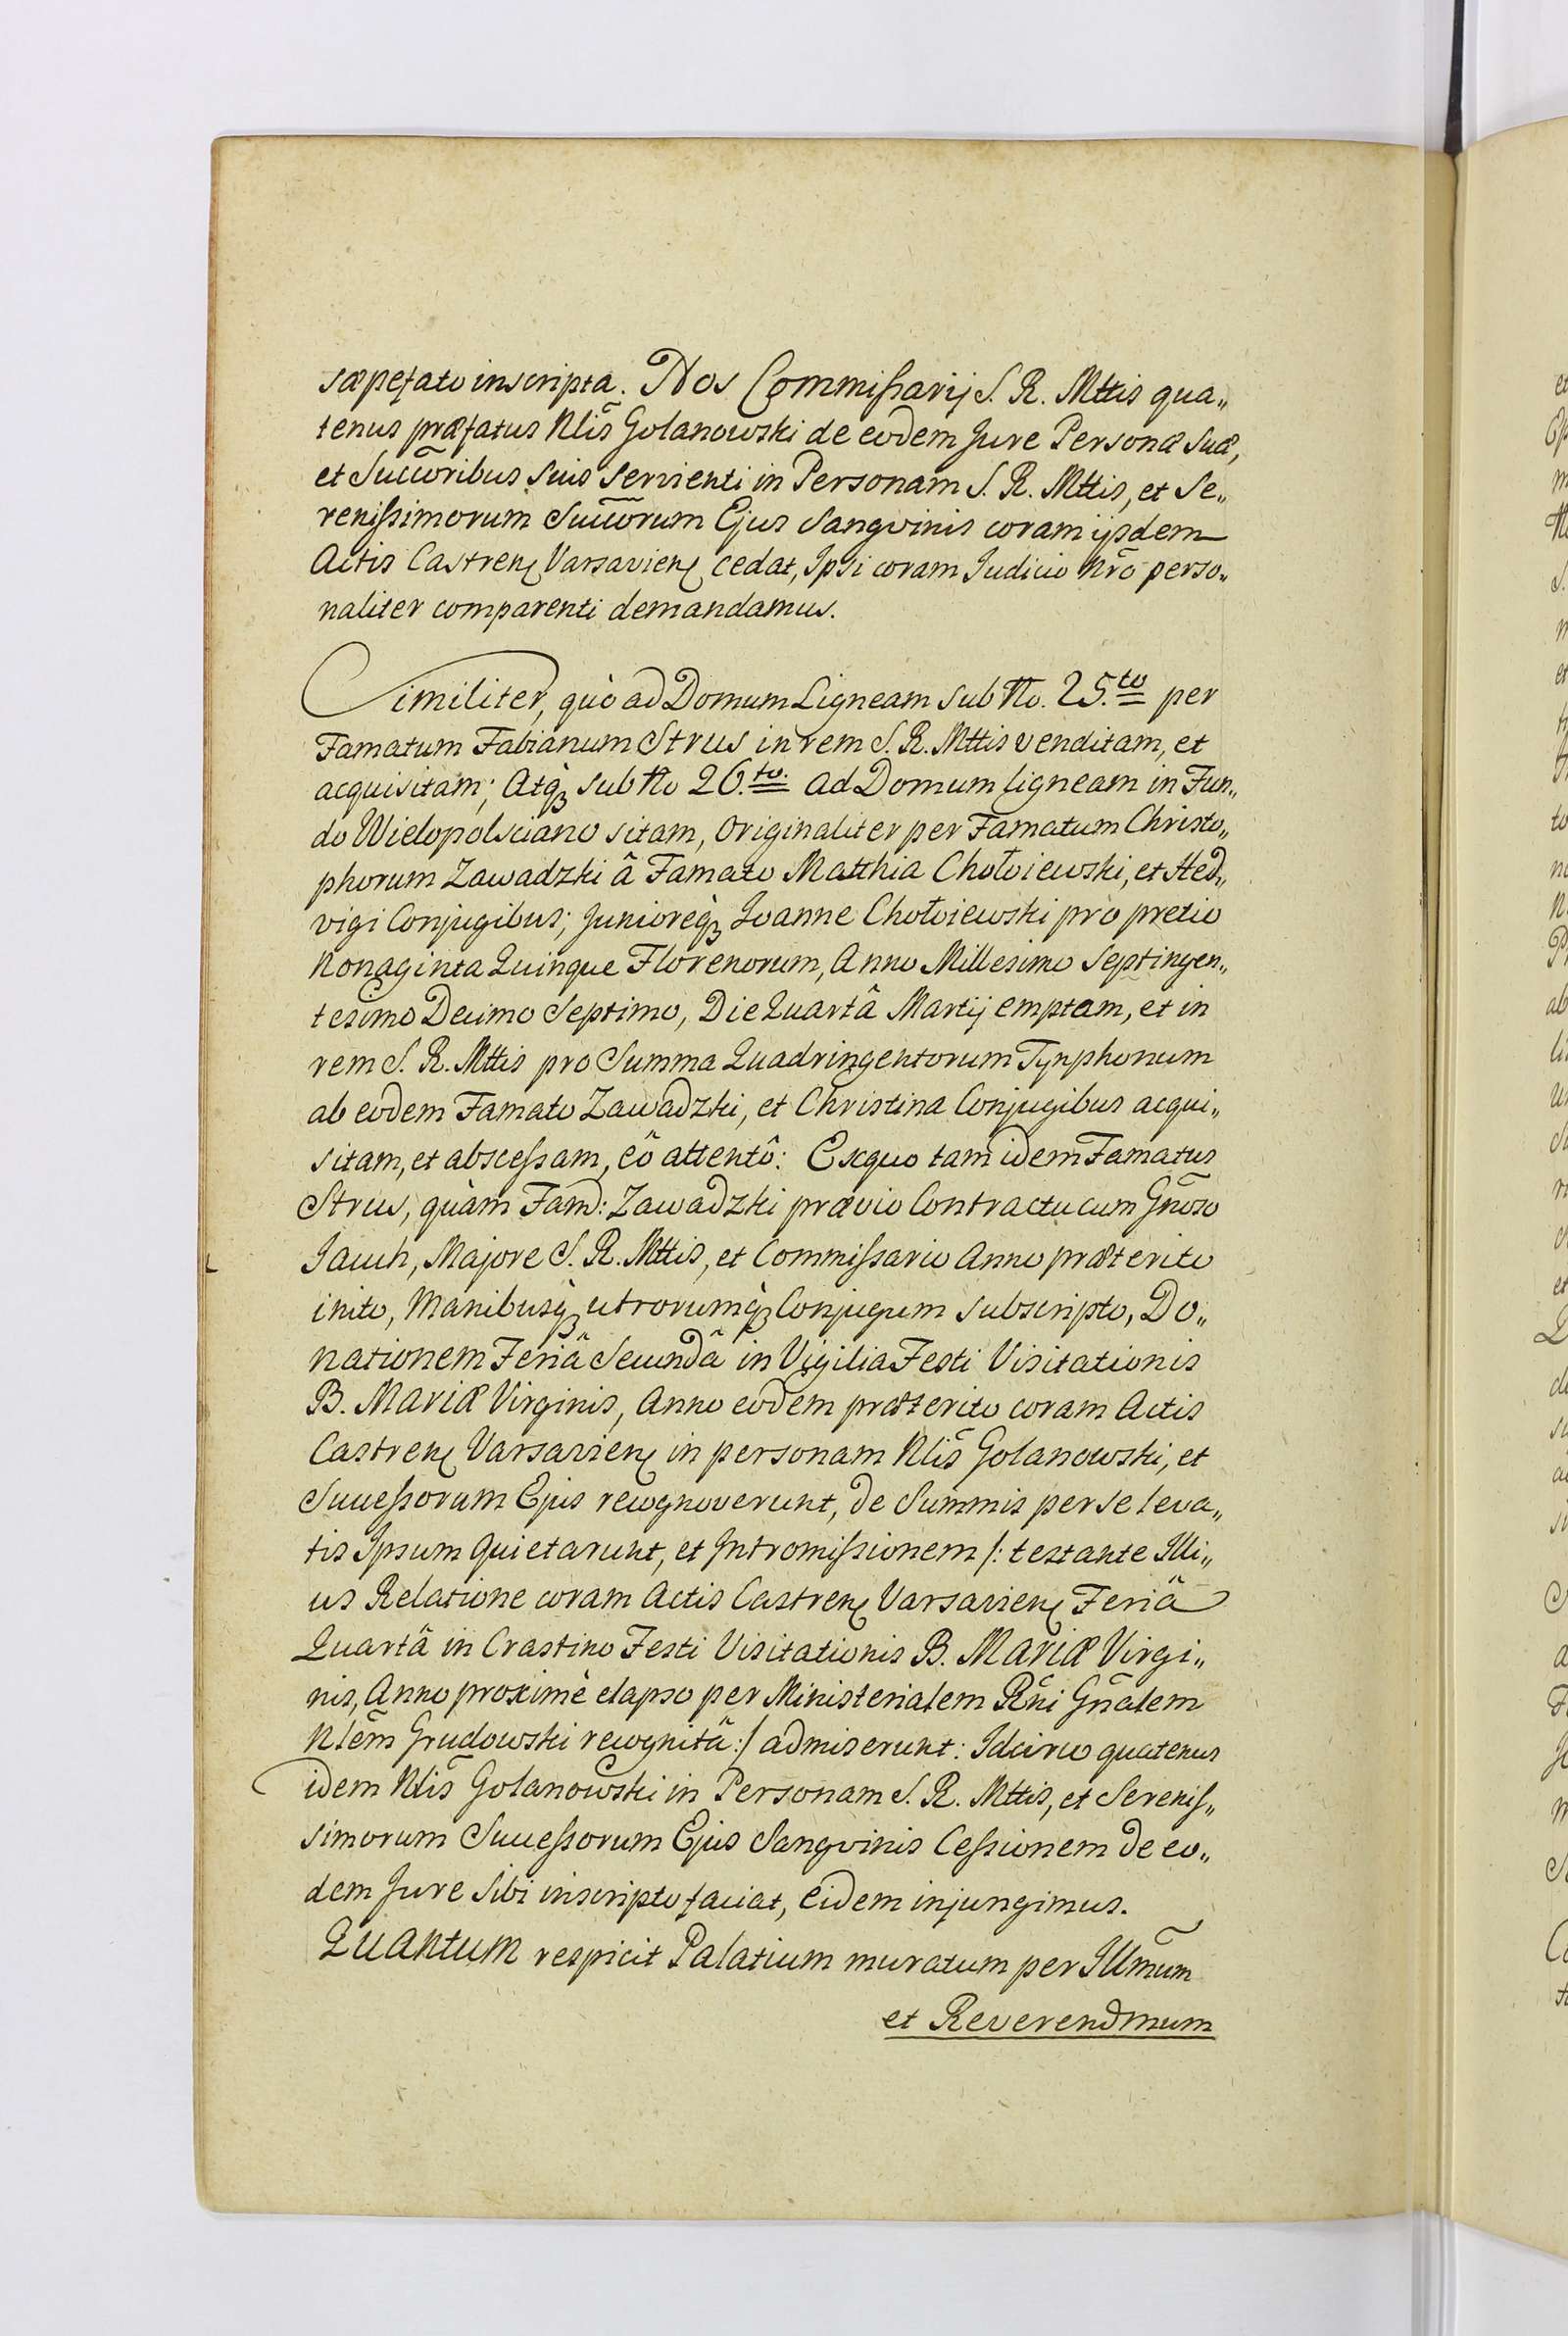 sæpefato inscripta. Nos Commissarij S. R. Mttis qua„
tenus præfatus Nlis̃ Golanowski de eodem Jure Personæ suæ,
et Succõribus suis servienti in Personam S. R. Mttis, et Se„
renissimorum Succõrum Ejus Sangvinis coram ijsdem
Actis Castren Varsavien cedat, Ipsi coram Judicio nr̃o perso„
naliter comparenti demandamus.
Similiter, quò ad Domum Ligneam sub No. 25.to per
Famatum Fabianum Strus in rem S. R. Mttis venditam, et
acquisitam; Atq̀ꝫ sub No 26.to. ad Domum ligneam in Fun„
do Wielopolsciano sitam, Originaliter per Famatum Christo„
phorum Zawadzki â Famato Matthia Chołoiewski, et Hed„
vigi Conjugibus; Junioreq̀ꝫ Joanne Chołoiewski pro pretio
Nonaginta Quinque Florenorum, Anno Millesimo Septingen„
tesimo Decimo Septimo, Die Quartâ Martij emptam, et in
rem S. R. Mttis pro Summa Quadringentorum Tynphonum
ab eodem Famato Zawadzki, et Christina Conjugibus acqui„
sitam, et abscessam, eô attentô: Exquo tam idem Famatus
Strus, quàm Fam̃d: Zawadzki prævio Contractu cum Gnõso
Jauch, Majore S. R. Mttis, et Commissario Anno præterito
inito, Manibusq̀ꝫ utrorumq̀ꝫ Conjugum subscripto, Do„
nationem Feriâ Secundâ in Vigilia Festi Visitationis
B. MARIÆ Virginis, Anno eodem præterito coram Actis
Castren Varsavien in personam Nlis̃ Golanowski, et
Successorum Ejus recognoverunt, de Summis per se leva„
tis Ipsum quietarunt, et Intromissionem /: testante Illi„
us Relatione coram Actis Castren Varsavien Feriâ
Quartâ in Crastino Festi Visitationis B. MARIÆ Virgi„
nis, Anno proximè elapso per Ministerialem Rñi Gñalem
Nlem̃ Grudowski recognitâ :/ admiserunt: Idcirco quatenus
idem Nlis̃ Golanowski in Personam S. R. Mttis, et Serenis„
simorum Successorum Ejus Sangvinis Cessionem de eo„
dem Jure Sibi inscripto faciat, Eidem injungimus.
QUANTUM respicit Palatium muratum per Illmũm
et Reverendmum